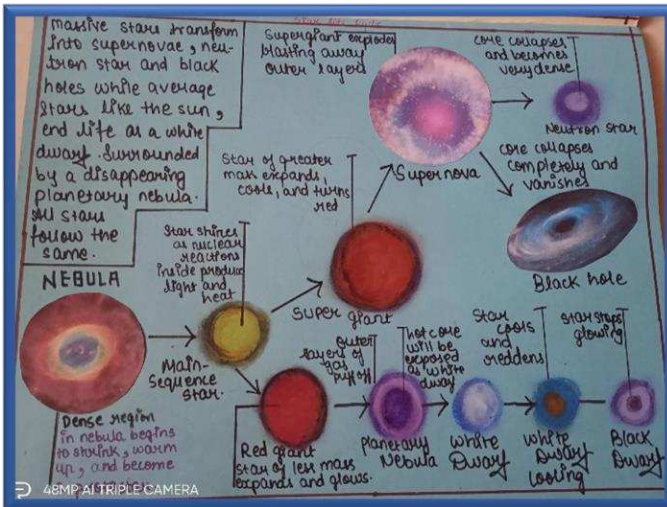 Massive stars transform
into supernovae, neu-
tron star and black
holes while average
stars like the sun,
end life as a white
dwarf. Surrounded
by a disappearing
planetary nebula.
All stars
follow the
same.
Supergiant explodes
blasting away
outer layers
core collapses
and becomes
very dense
Neutron star
Supernova
core collapses
completely and
vanishes
Black hole
Star of greater
mass expands,
cools, and turns
red
Super giant
Star shines
as nuclear
reactions
inside produce
light and
heat
NEBULA
Main-
Sequence
star.
Dense region
in nebula begins
to shrink, warm
up, and become
Red giant
star of less mass
expands and glows.
Outer
layers of
gas
puff off
Planetary
Nebula
hot core
will be
exposed
as white
dway
White
Dwarf
Star
cools
and
reddens
White
Dwarf
Cooling
star stops
glowing
Black
Dwarf
48MP AI TRIPLE CAMERA